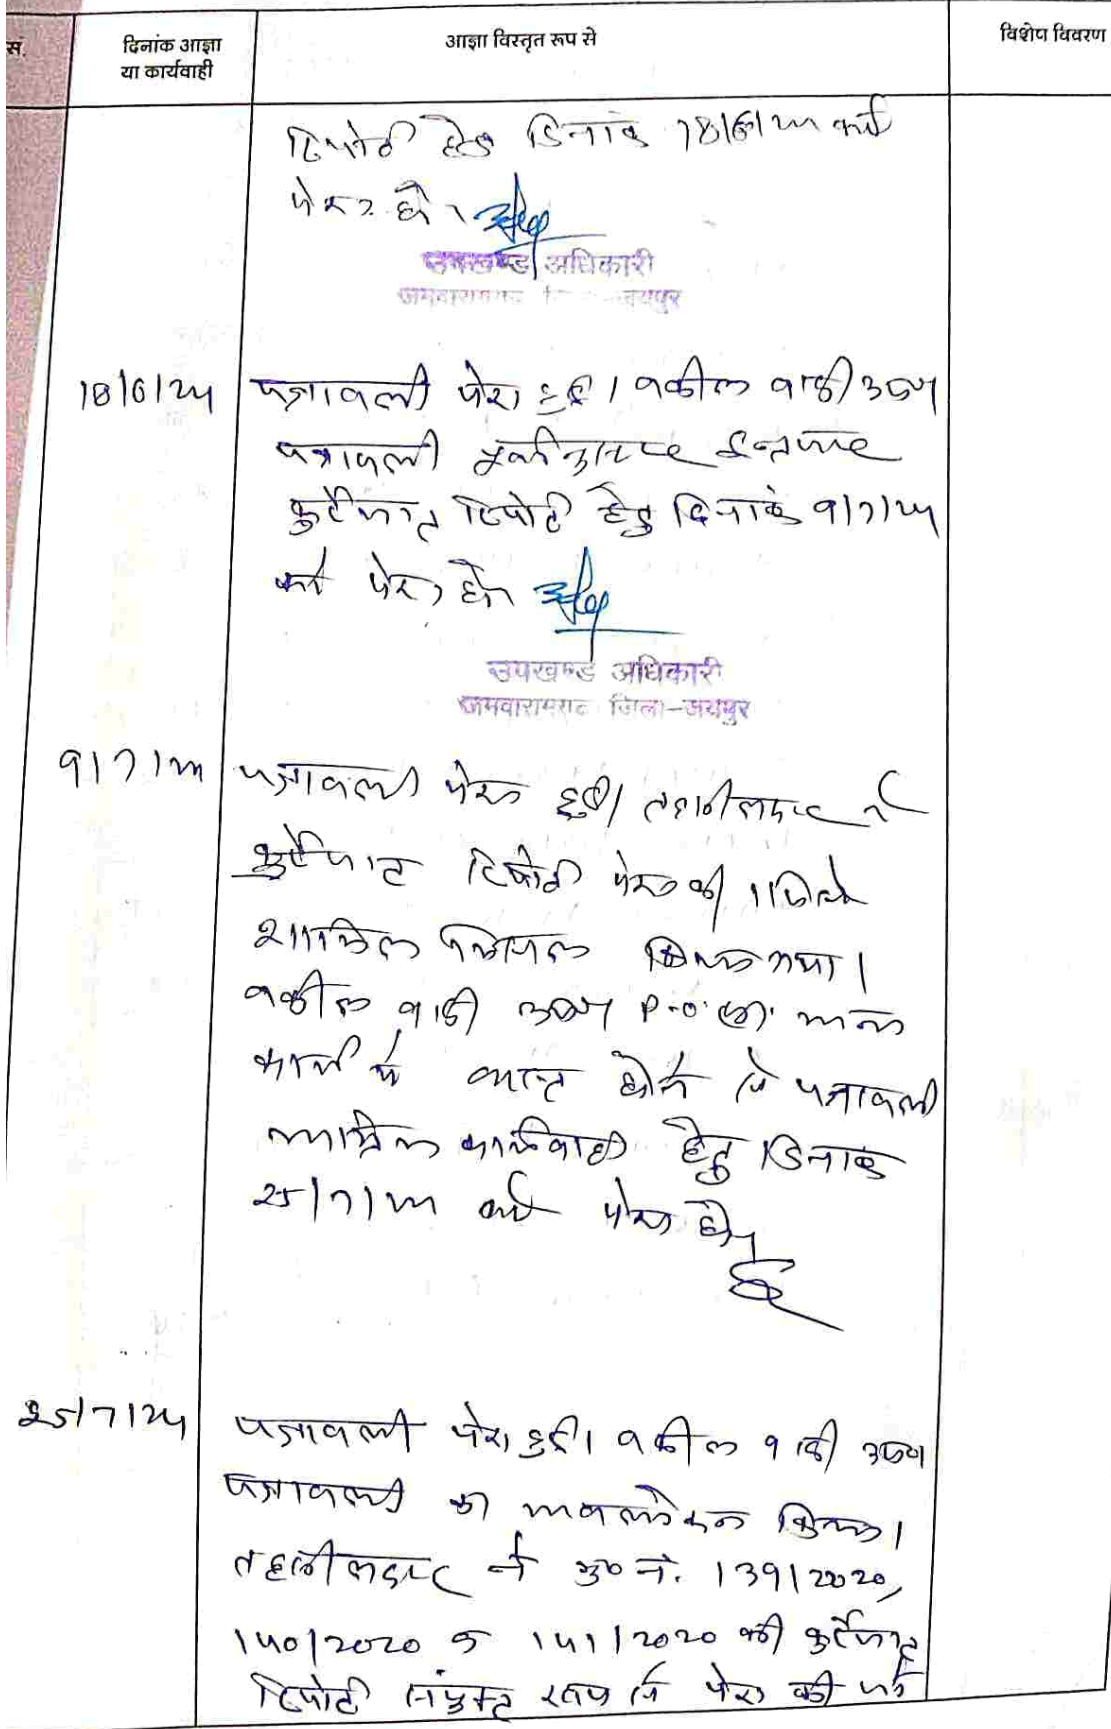 सं.
दिनांक आज्ञा
या कार्यवाही
आज्ञा विस्तृत रूप से
विशेष विवरण
रिपोर्ट हेतु दिनांक 18/6/24 को
पेश हो।
उपखण्ड अधिकारी
जमवारामगढ़ जिला-जयपुर
18/6/24
पत्रावली पेश हुई। वकील वादी उप०
पत्रावली इन्तजार
कुर्रेजात रिपोर्ट हेतु दिनांक 9/7/24
को पेश हो।
उपखण्ड अधिकारी
जमवारामगढ़ जिला-जयपुर
9/7/24
पत्रावली पेश हुई। तहसीलदार ने
कुर्रेजात रिपोर्ट पेश की। जिसे
शामिल मिसल किया गया।
वकील वादी उप० P.O. अन्य
कार्य में व्यस्त होने से पत्रावली
कार्यवाही हेतु दिनांक
25/7/24 को पेश हो।
25/7/24
पत्रावली पेश हुई। वकील वादी उप०
पत्रावली का अवलोकन किया।
तहसीलदार ने मु० नं. 139/2020,
140/2020 व 141/2020 की कुर्रेजात
रिपोर्ट संयुक्त रूप से पेश की गई